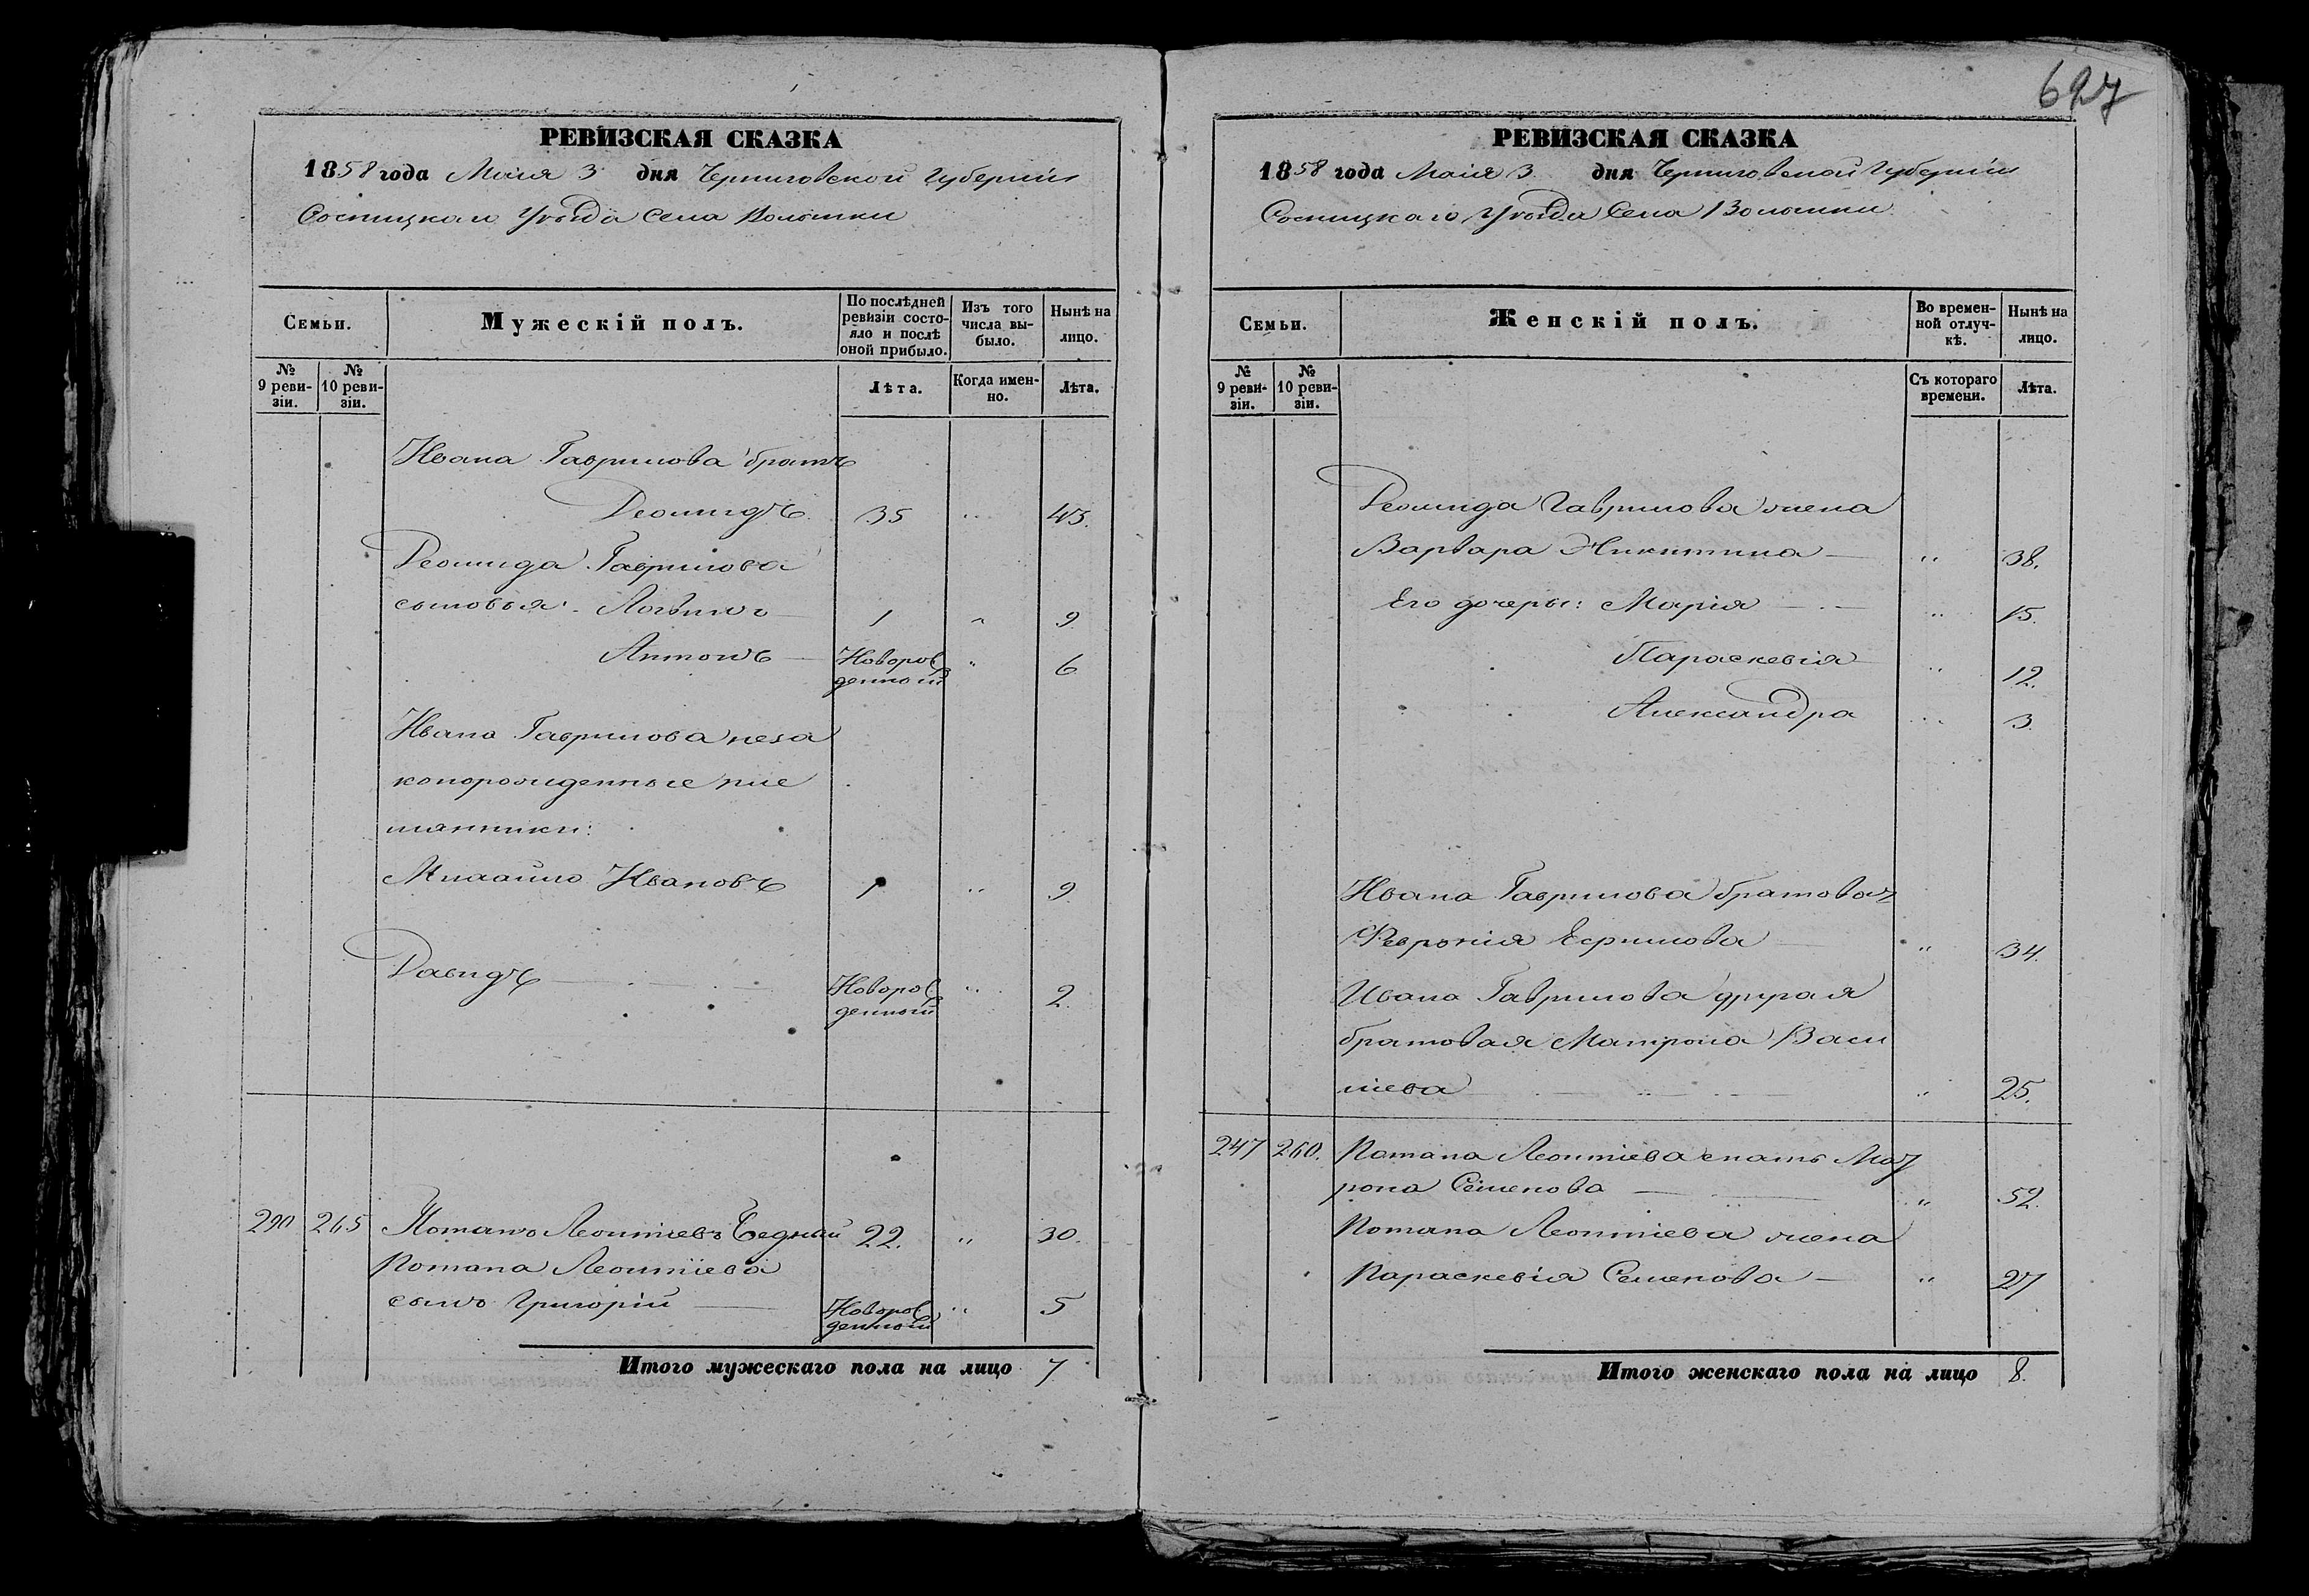 627
РЕВИЗСКАЯ СКАЗКА
1858 года Маія 3 дня Черниговской Губерніи
Сосницкаго Уѣзда Села Волынки
Семьи.
Мужескій полъ.
По послѣдней ревизіи состояло и послѣ оной прибыло.
Изъ того числа выбыло.
Нынѣ на лицо.
№ 9 ревизіи.
№ 10 ревизіи.
Лѣта.
Когда именно.
Лѣта.
Ивана Гаврилова братъ
Леонидъ 35 " 43.
Леонида Гаврилова
сыновья: Логвинъ 1 " 9
Антонъ Новорожденный " 6
Ивана Гаврилова неза
конорожденные пле
мянники:
Михайло Ивановъ 1 " 9
Давидъ Новорожденный " 2.
290 265 Потапъ Леонтіевъ Бедный 22. " 30.
Потапа Леонтіева
сынъ Григорій Новорожденный " 5
Итого мужескаго пола на лицо 7
РЕВИЗСКАЯ СКАЗКА
1858 года Маія 3 дня Черниговской Губерніи
Сосницкаго Уѣзда Села Волынки
Семьи.
Женскій полъ.
Во временной отлучкѣ.
Нынѣ на лицо.
№ 9 ревизіи.
№ 10 ревизіи.
Съ котораго времени.
Лѣта.
Леонида Гаврилова жена
Варвара Никитина " 38.
Его дочеры: Марія " 15.
Параскевія " 12.
Александра " 3.
Ивана Гаврилова братовая
Февронія Ефимова " 34.
Ивана Гаврилова другая
братовая Матрона Васи
ліева " 25.
247 260. Потапа Леонтіева мать
Семенова " 52.
Потапа Леонтіева жена
Параскевія Семенова " 27
Итого женскаго пола на лицо 8.